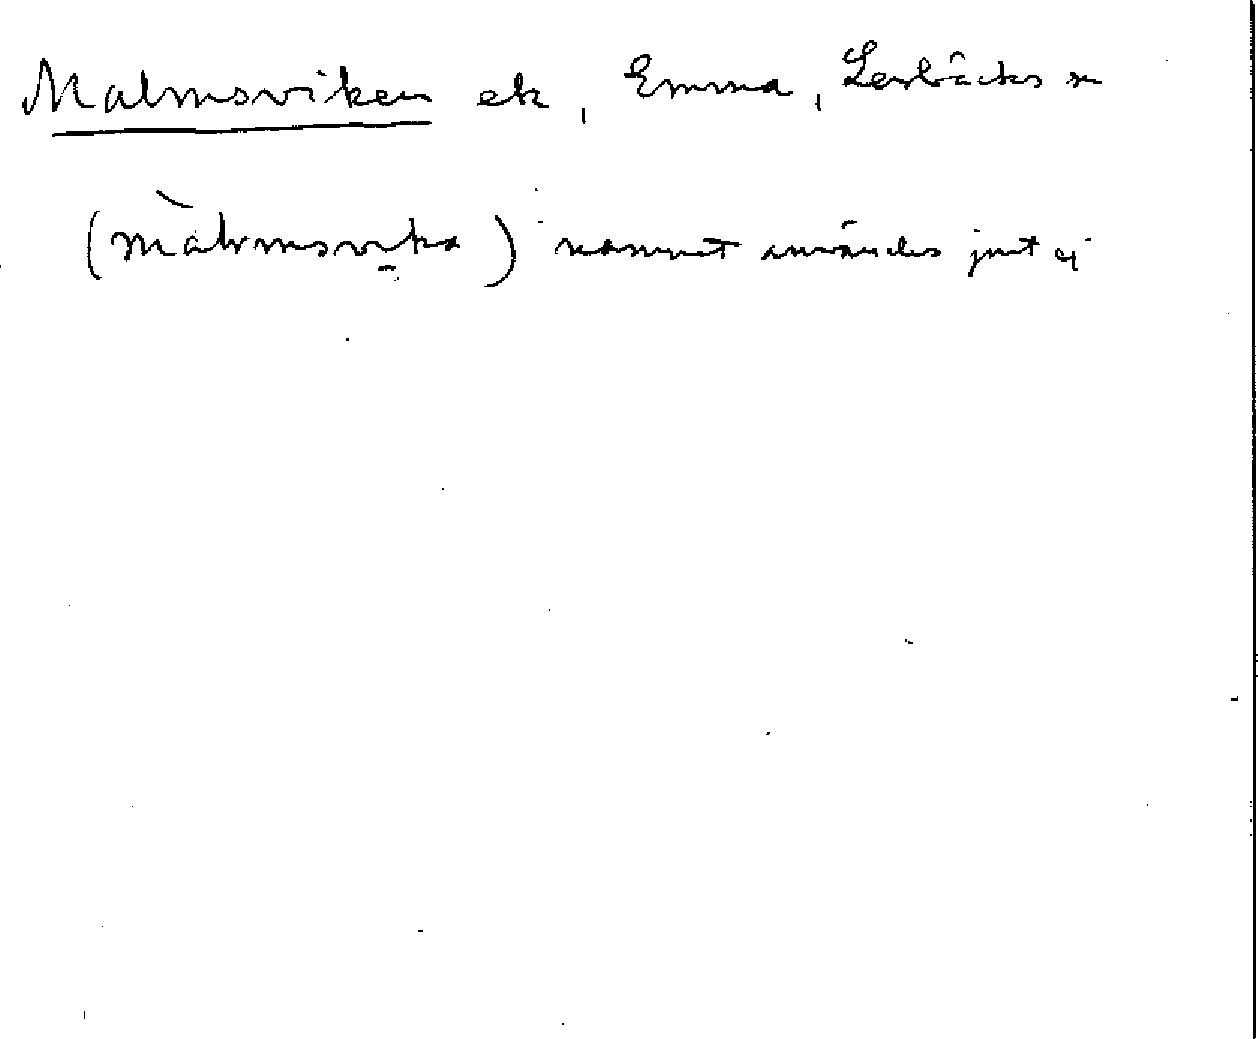 Malmsviken ek, Emma, Lerbäcks sn
(màlmsvika) namnet användes just ej